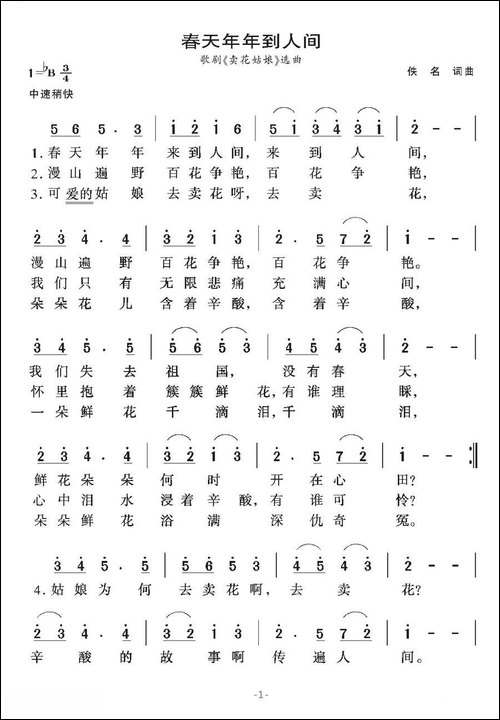 春天年年到人间
歌剧《卖花姑娘》选曲
1=♭B 3/4
佚 名 词曲
中速稍快
5 6 5 . 3 | 1 2 1 6 | 5 1 3 4 3 1 | 2 - - |
1.春天年年 来到人间，来到人间，
2.漫山遍野 百花争艳，百花争艳，
3.可爱的姑娘 去卖花呀，去卖花，
2 3 4 . 4 | 3 2 1 3 | 2 . 5 7 2 | 1 - - |
漫山遍野 百花争艳，百花争艳。
我们只有 无限悲痛 充满心间，
朵朵花儿 含着辛酸，含着辛酸，
3 4 5 . 5 | 5 6 5 3 | 2 5 4 5 4 3 | 2 - - |
我们失去 祖国，没有春天，
怀里抱着 簇簇鲜花，有谁理睬，
一朵鲜花 千滴泪，千滴泪，
2 3 4 . 6 | 3 2 1 3 | 2 . 5 7 2 | 1 - - :|
鲜花朵朵 何时 开在心田？
心中泪水 浸着辛酸，有谁可怜？
朵朵鲜花 浴满 深仇奇冤。
3 4 5 . 5 | 5 6 5 3 | 2 5 4 5 4 3 | 2 - - |
4.姑娘为何 去卖花啊，去卖花？
2 3 4 . 4 | 3 2 1 3 | 2 . 5 7 2 | 1 - - |
辛酸的故事啊 传遍人间。
-1-